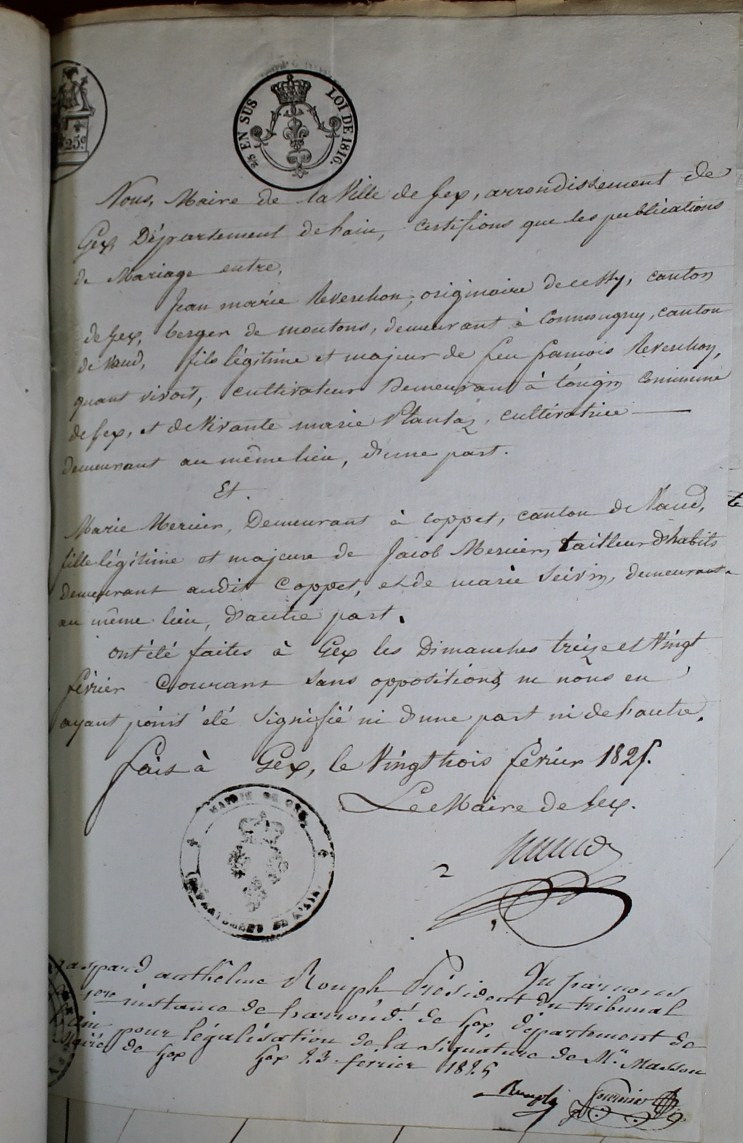 25 EN SUS LOI DE 1816.
25c
Nous, Maire de la Ville de Gex, arrondissement de
Gex Département de Lain, certifions que les publications
de Mariage entre,
Jean marie Reverchon, originaire de cessy, canton
de Gex, berger de moutons, demeurant à Commugny, canton
de Vaud, fils légitime et majeur de feu françois Reverchon,
quant vivoit, cultivateur Demeurant à tougin commune
de Gex, et de vivante marie Plantaz, cultivatrice
demeurant au même lieu, d'une part.
Et
Marie Mercier, Demeurant à Coppet, canton de Vaud,
fille légitime et majeure de Jacob Mercier, tailleur d'habits
demeurant audit Coppet, et de marie, demeurant
au même lieu, d'autre part.
ont été faites à Gex les Dimanches treize et Vingt
février Courant sans oppositions ne nous en
ayant point été signifié ni d'une part ni de l'autre.
fait à Gex, le Vingt trois février 1825.
Le Maire de Gex.
MAIRIE DE GEX
DÉPARTEMENT DE L'AIN
Vu par nous
gaspard anthelme Rouph Président du tribunal
1ere instance de l'arrondt. de Gex, département de
l'ain pour légalisation de la signature de Mr. Masson
Maire de Gex Gex 23 fevrier 1825
Rouph